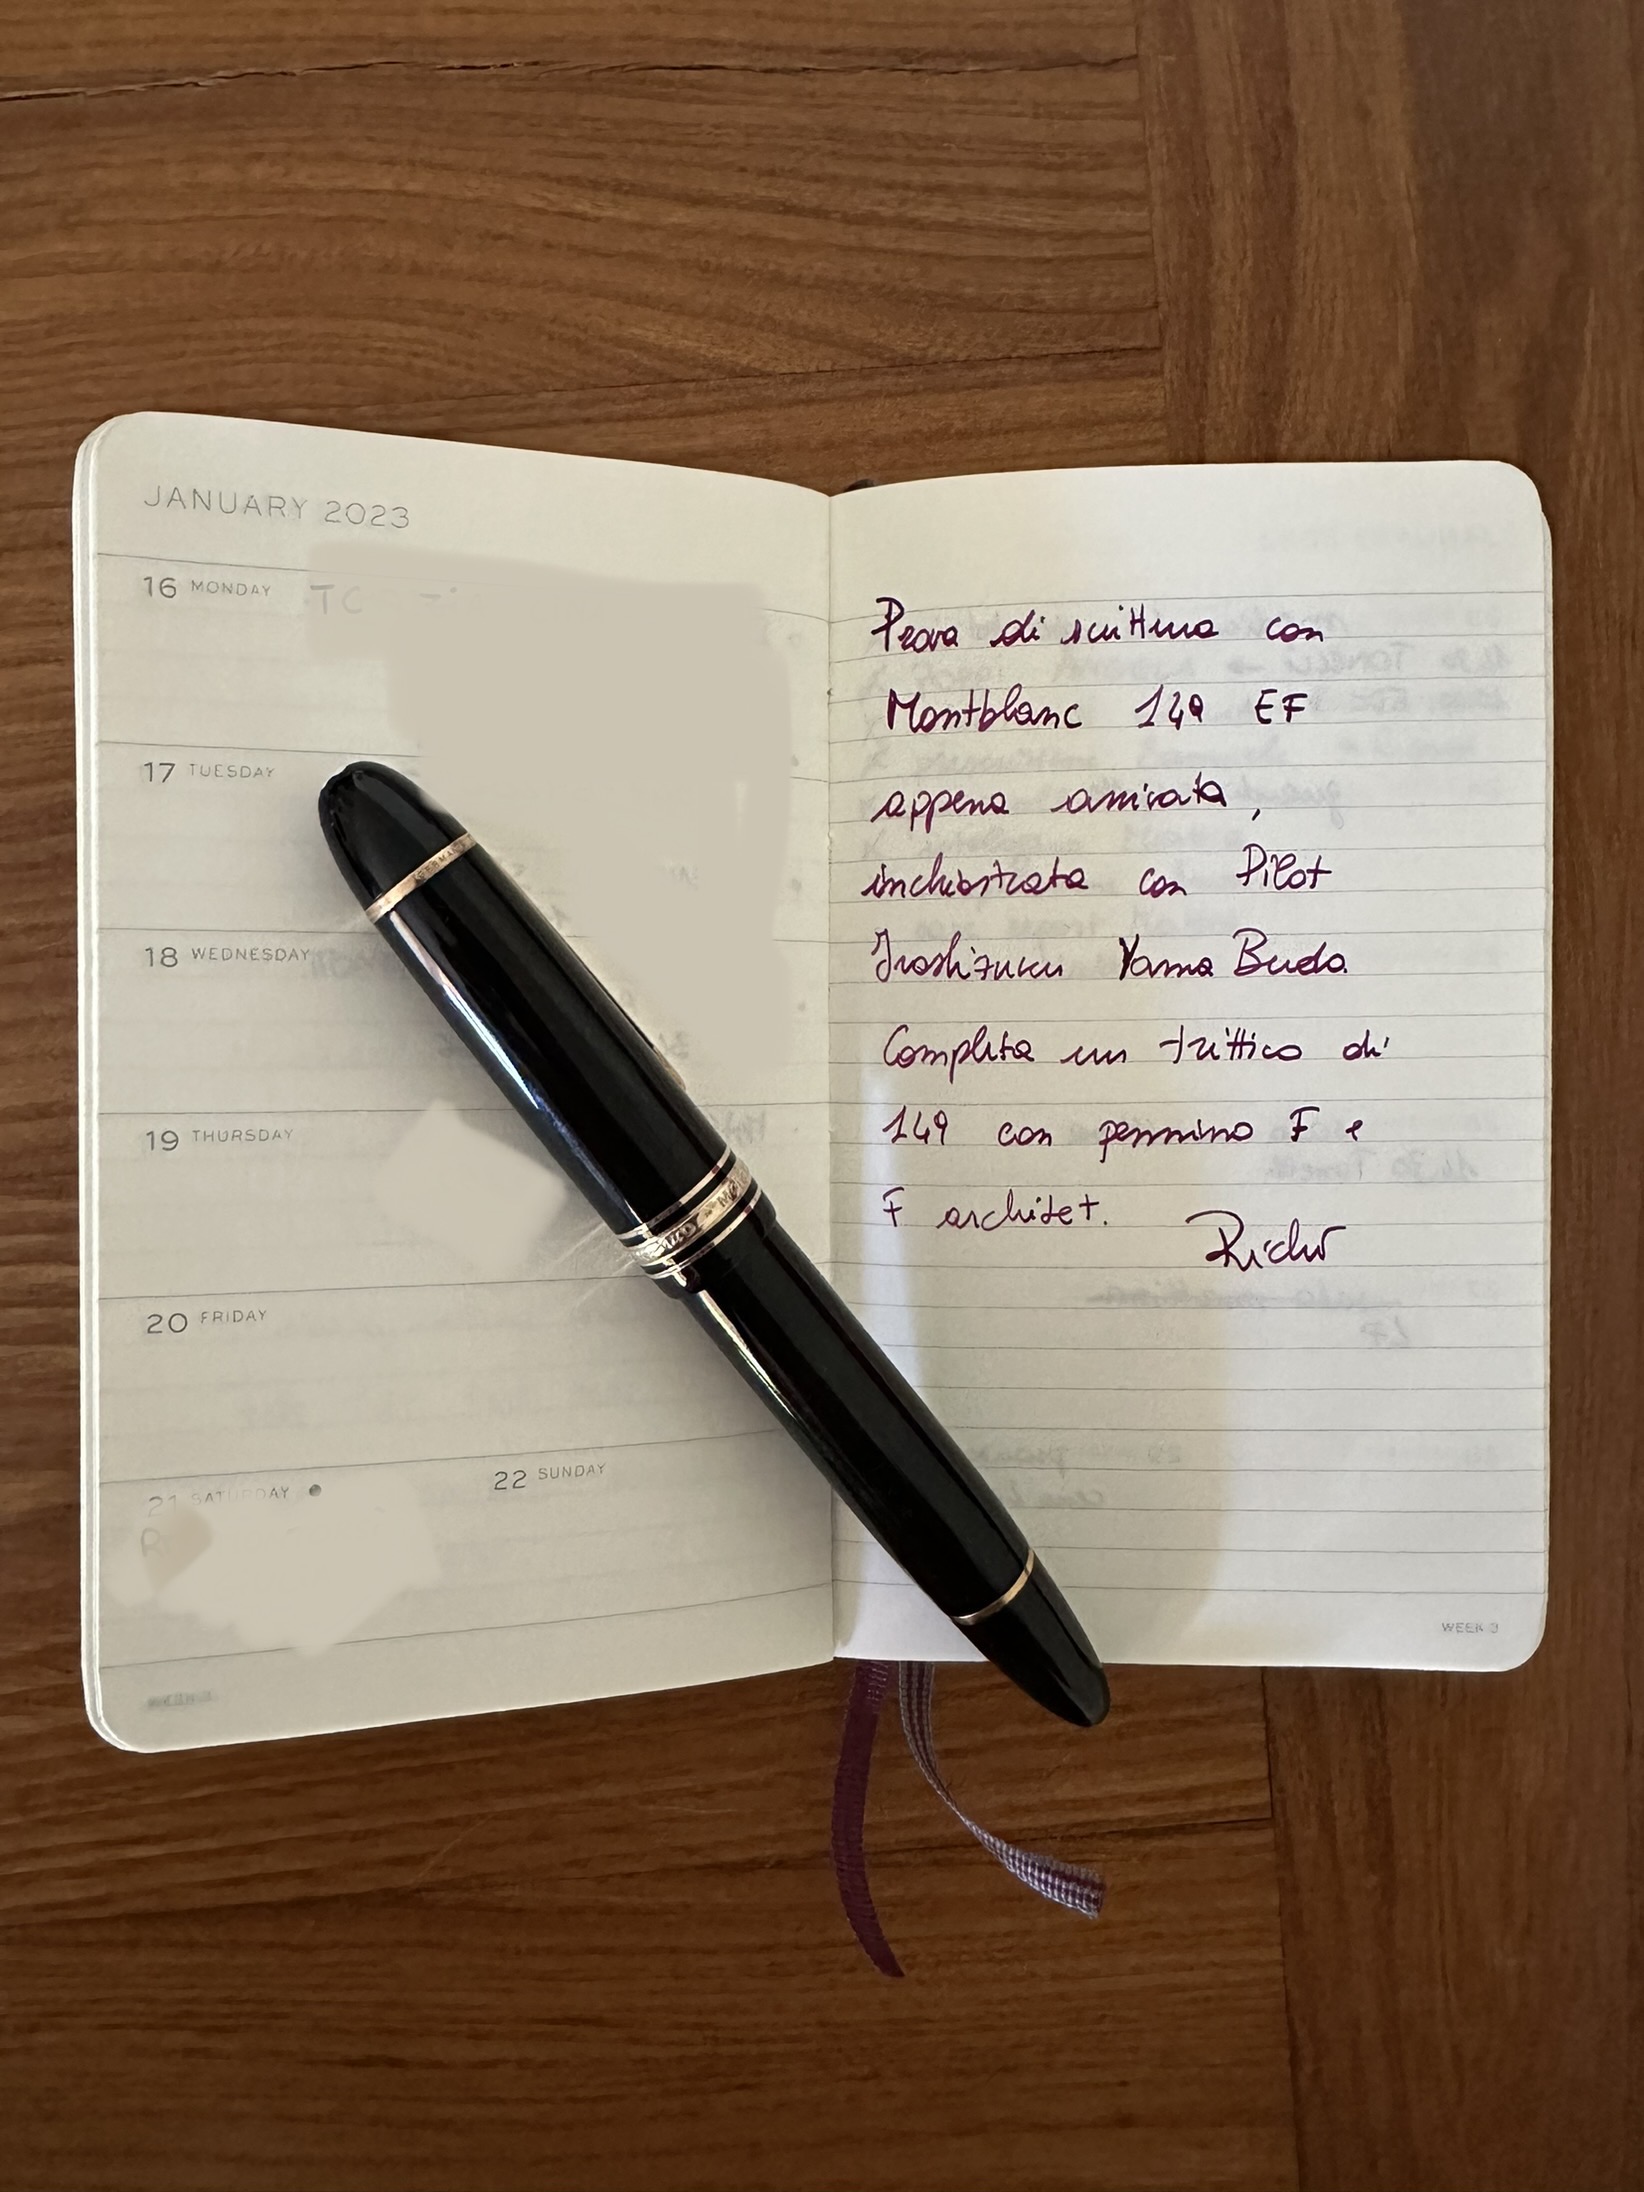 JANUARY 2023
16 MONDAY
17 TUESDAY
18 WEDNESDAY
19 THURSDAY
20 FRIDAY
21 SATURDAY
22 SUNDAY
GERMANY
Prova di scrittura con
Montblanc 149 EF
appena arrivata,
inchiostrata con Pilot
Iroshizuku Yama Budo.
Completa un trittico di
149 con pennino F e
F architet.
WEEK 3